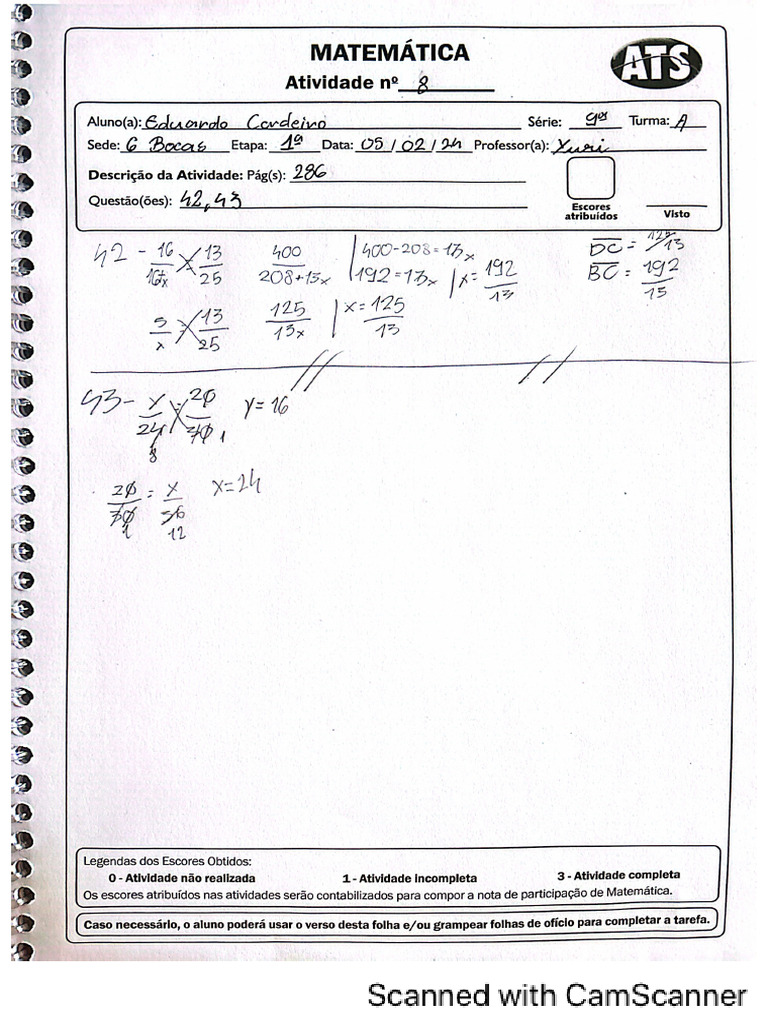 MATEMÁTICA
Atividade nº 8
ATS
Aluno(a): Eduardo Cordeiro Série: 9º Turma: A
Sede: 6 Bocas Etapa: 1ª Data: 05/02/24 Professor(a): Yuri
Descrição da Atividade: Pág(s): 286
Questão(ões): 42,43
Escores atribuídos
Visto
42 - 16/16+x = 13/25 400/208+13x 400-208=13x DC = 125/13
192=13x x=192/13 BC = 192/13
5/x = 13/25 125/13x x=125/13
43 - y/24 = 20/30 y=16
8 1
20/30 = x/36 x=24
1 12
Legendas dos Escores Obtidos:
0 - Atividade não realizada 1 - Atividade incompleta 3 - Atividade completa
Os escores atribuídos nas atividades serão contabilizados para compor a nota de participação de Matemática.
Caso necessário, o aluno poderá usar o verso desta folha e/ou grampear folhas de ofício para completar a tarefa.
Scanned with CamScanner